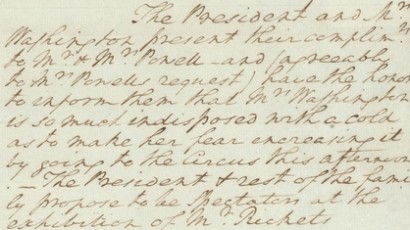 The President and Mrs
Washington present their complimts
to Mr & Mrs Powell—and (agreeably
to Mrs Powells request) have the honor
to inform them that Mrs Washington
is so much indisposed with a cold
as to make her fear encreasing it
by going to the Circus this afternoon
—The President & rest of the fami
ly propose to be Spectators at the
exhibition of Mr Rickets